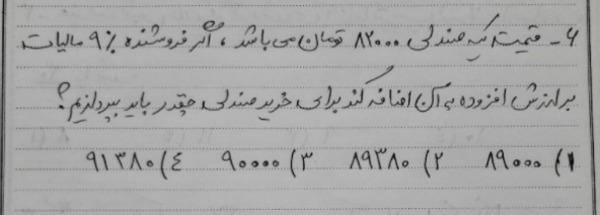 ۶- قیمت یک صندلی ۸۲۰۰۰ تومان می باشد ، اگر فروشنده ۹٪ مالیات
بر ارزش افزوده به آن اضافه کند برای خرید صندلی چقدر باید بپردازیم؟
۱) ۸۹۰۰۰ ۲) ۸۹۳۸۰ ۳) ۹۰۰۰۰ ۴) ۹۱۳۸۰